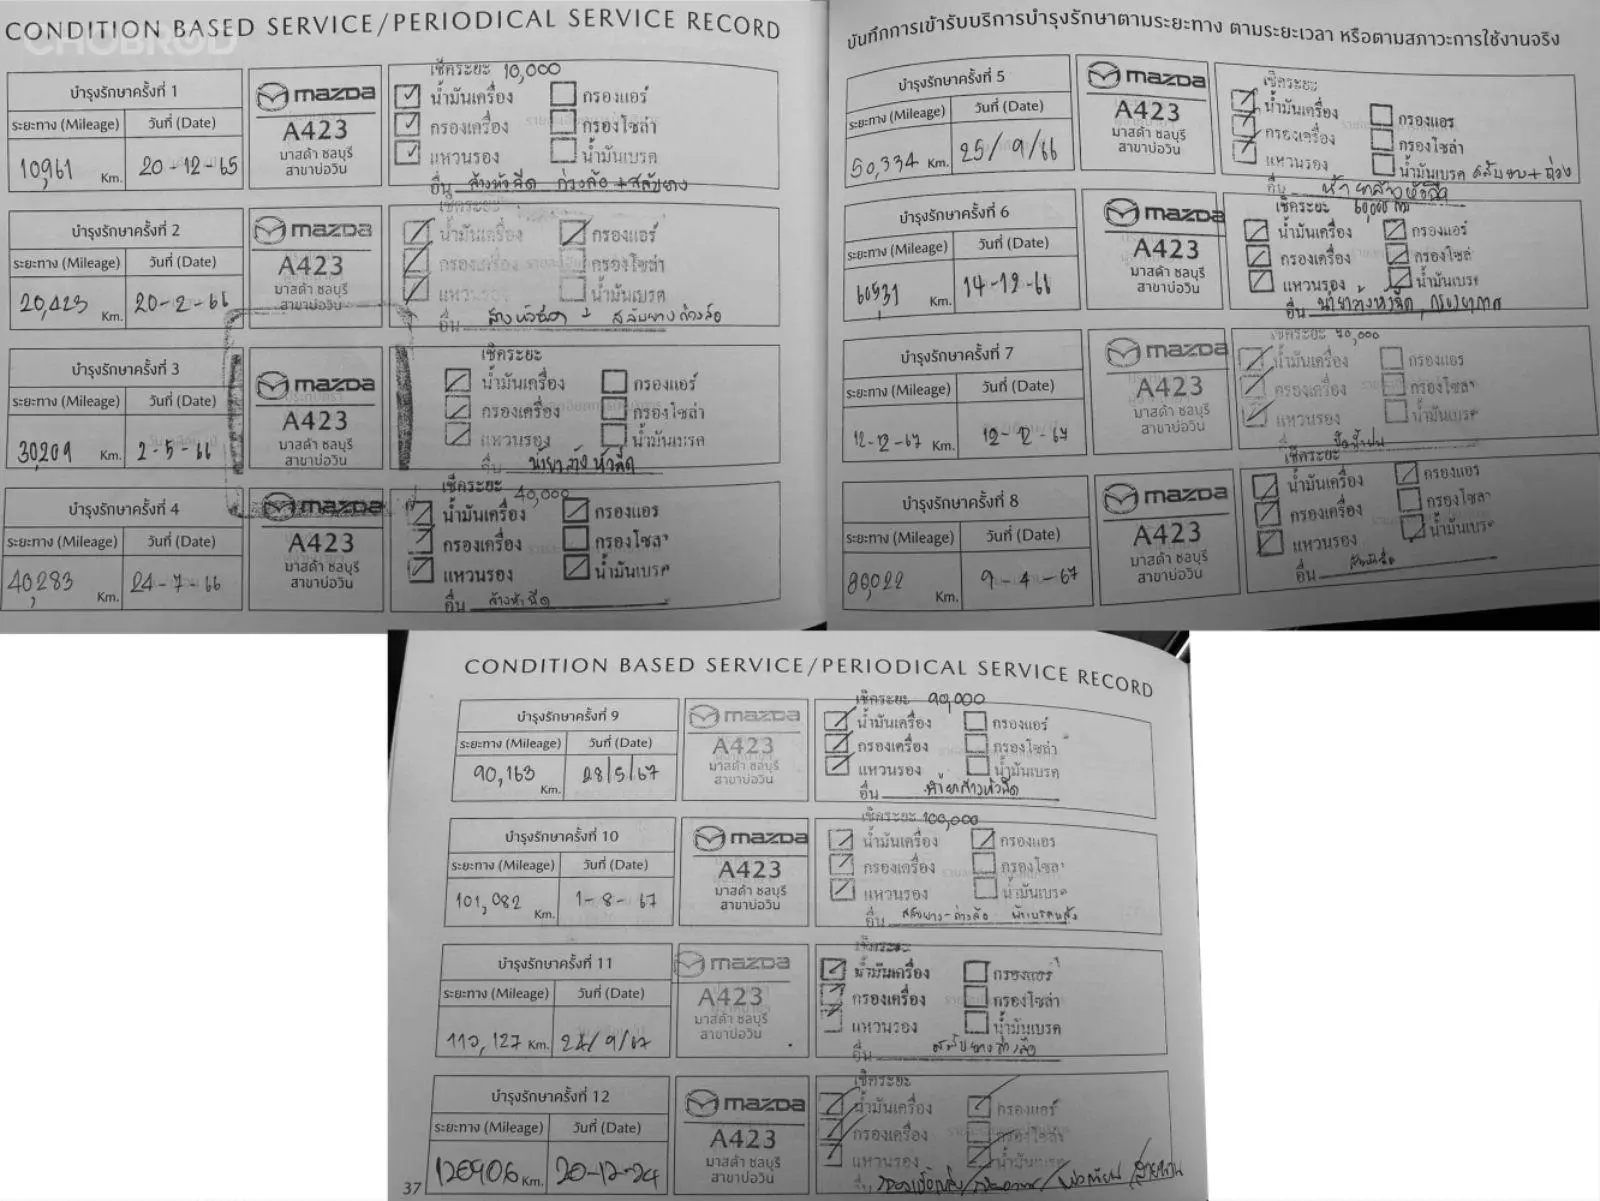 CONDITION BASED SERVICE/PERIODICAL SERVICE RECORD
CHOBROD
บำรุงรักษาครั้งที่ 1
ระยะทาง (Mileage) วันที่ (Date)
10,961 Km. 20-12-65
mazda
A423
มาสด้า ชลบุรี
สาขาบ่อวิน
เช็คระยะ 10,000
น้ำมันเครื่อง กรองแอร์
กรองเครื่อง กรองโซล่า
แหวนรอง น้ำมันเบรค
อื่น ล้างหัวฉีด ถ่วงล้อ + สลับยาง
บำรุงรักษาครั้งที่ 2
ระยะทาง (Mileage) วันที่ (Date)
20,423 Km. 20-2-66
mazda
A423
มาสด้า ชลบุรี
สาขาบ่อวิน
เช็คระยะ
น้ำมันเครื่อง กรองแอร์
กรองเครื่อง กรองโซล่า
แหวนรอง น้ำมันเบรค
อื่น ล้างหัวฉีด + สลับยางถ่วงล้อ
บำรุงรักษาครั้งที่ 3
ระยะทาง (Mileage) วันที่ (Date)
30,209 Km. 2-5-66
mazda
A423
มาสด้า ชลบุรี
สาขาบ่อวิน
เช็คระยะ
น้ำมันเครื่อง กรองแอร์
กรองเครื่อง กรองโซล่า
แหวนรอง น้ำมันเบรค
อื่น น้ำยาล้างหัวฉีด
บำรุงรักษาครั้งที่ 4
ระยะทาง (Mileage) วันที่ (Date)
40,283 Km. 24-7-66
mazda
A423
มาสด้า ชลบุรี
สาขาบ่อวิน
เช็คระยะ 40,000
น้ำมันเครื่อง กรองแอร
กรองเครื่อง กรองโซลา
แหวนรอง น้ำมันเบรค
อื่น ล้างหัวฉีด
บันทึกการเข้ารับบริการบำรุงรักษาตามระยะทาง ตามระยะเวลา หรือตามสภาวะการใช้งานจริง
บำรุงรักษาครั้งที่ 5
ระยะทาง (Mileage) วันที่ (Date)
50,334 Km. 25/9/66
mazda
A423
มาสด้า ชลบุรี
สาขาบ่อวิน
เช็คระยะ
น้ำมันเครื่อง กรองแอร
กรองเครื่อง กรองโซล่า
แหวนรอง น้ำมันเบรค สลับยาง + ถ่วง
อื่น น้ำยาล้างหัวฉีด
บำรุงรักษาครั้งที่ 6
ระยะทาง (Mileage) วันที่ (Date)
60,531 Km. 14-12-66
mazda
A423
มาสด้า ชลบุรี
สาขาบ่อวิน
เช็คระยะ 60,000 กม
น้ำมันเครื่อง กรองแอร์
กรองเครื่อง กรองโซล่
แหวนรอง น้ำมันเบรค
อื่น น้ำยาล้างหัวฉีด, กรองอากาศ
บำรุงรักษาครั้งที่ 7
ระยะทาง (Mileage) วันที่ (Date)
12-12-67 Km. 12-12-67
mazda
A423
มาสด้า ชลบุรี
สาขาบ่อวิน
เช็คระยะ 70,000
น้ำมันเครื่อง กรองแอร
กรองเครื่อง กรองโซลา
แหวนรอง น้ำมันเบรค
บำรุงรักษาครั้งที่ 8
ระยะทาง (Mileage) วันที่ (Date)
80,022 Km. 9-4-67
mazda
A423
มาสด้า ชลบุรี
สาขาบ่อวิน
เช็คระยะ
น้ำมันเครื่อง กรองแอร
กรองเครื่อง กรองโซลา
แหวนรอง น้ำมันเบรค
อื่น ล้างหัวฉีด
CONDITION BASED SERVICE/PERIODICAL SERVICE RECORD
บำรุงรักษาครั้งที่ 9
ระยะทาง (Mileage) วันที่ (Date)
90,163 Km. 28/5/67
mazda
A423
มาสด้า ชลบุรี
สาขาบ่อวิน
เช็คระยะ 90,000
น้ำมันเครื่อง กรองแอร์
กรองเครื่อง กรองโซล่า
แหวนรอง น้ำมันเบรค
อื่น น้ำยาล้างหัวฉีด
บำรุงรักษาครั้งที่ 10
ระยะทาง (Mileage) วันที่ (Date)
101,082 Km. 1-8-67
mazda
A423
มาสด้า ชลบุรี
สาขาบ่อวิน
เช็คระยะ 100,000
น้ำมันเครื่อง กรองแอร
กรองเครื่อง กรองโซลา
แหวนรอง น้ำมันเบรค
อื่น สลับยาง-ถ่วงล้อ ผ้าเบรคหลัง
บำรุงรักษาครั้งที่ 11
ระยะทาง (Mileage) วันที่ (Date)
110,127 Km. 24/9/67
mazda
A423
มาสด้า ชลบุรี
สาขาบ่อวิน
เช็คระยะ
น้ำมันเครื่อง กรองแอร์
กรองเครื่อง กรองโซล่า
แหวนรอง น้ำมันเบรค
อื่น สลับยางถ่วงล้อ
บำรุงรักษาครั้งที่ 12
ระยะทาง (Mileage) วันที่ (Date)
120906 Km. 20-12-24
mazda
A423
มาสด้า ชลบุรี
สาขาบ่อวิน
เช็คระยะ
น้ำมันเครื่อง กรองแอร์
กรองเครื่อง กรองโซล่า
แหวนรอง น้ำมันเบรค
37